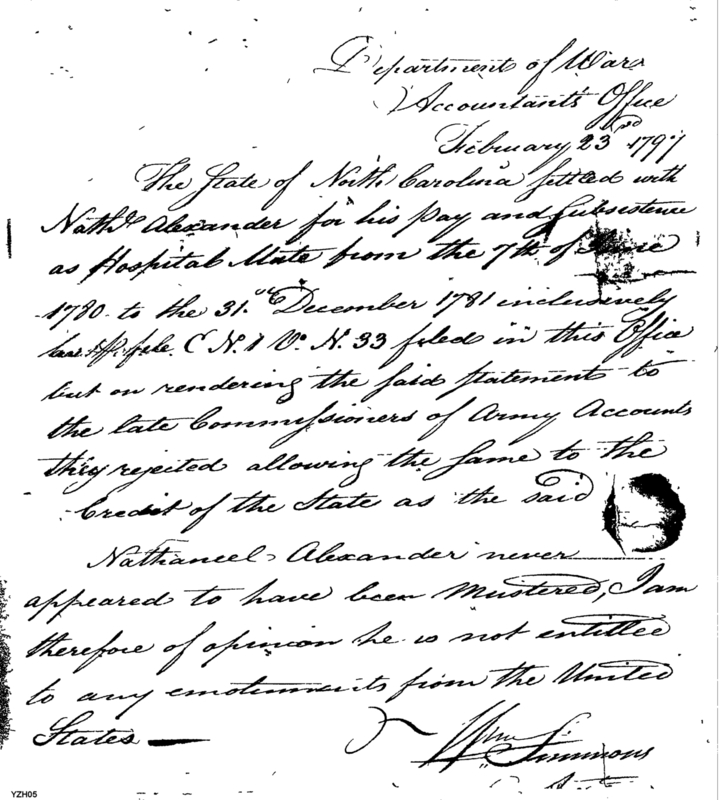 Department of War
Accountant's Office
February 23rd 1797
The State of North Carolina settled with
Nathl. Alexander for his pay and Subsistence
as Hospital Mate from the 7th of June
1780 to the 31st December 1781 inclusively
C N. 1 Vo. N. 33 filed in this Office
but on rendering the said statement to
the late Commissioners of Army Accounts
they rejected allowing the same to the
Credit of the State as the said
Nathaneel Alexander never
appeared to have been Mustered, I am
therefore of opinion he is not entitled
to any emoluments from the United
States
Wm Simmons
YZH05